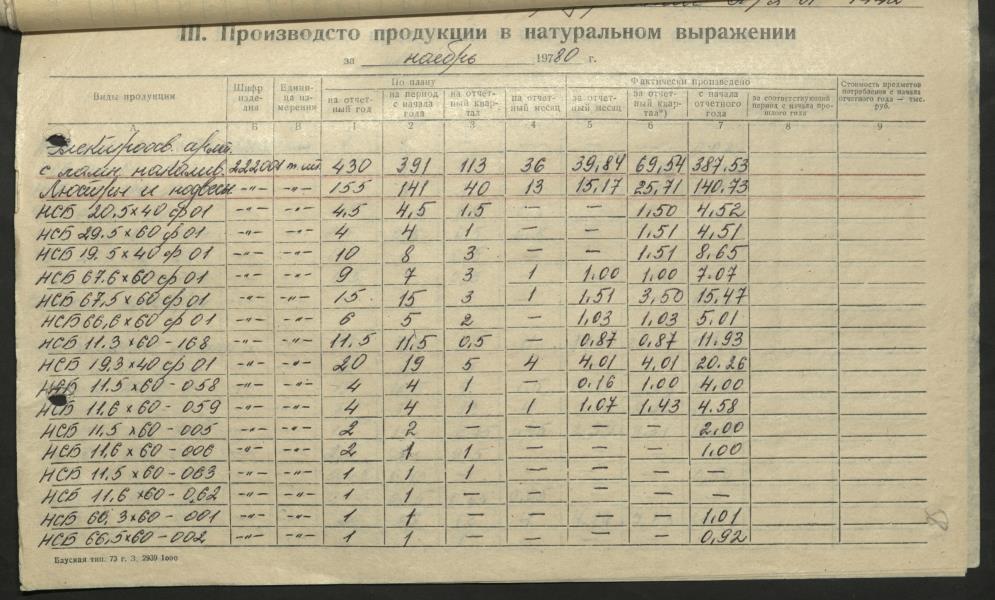 III. Производсто продукции в натуральном выражении
за ноябрь 1980 г.
Виды продукции Шифр изделия Единица измерения По плану Фактически произведено Стоимость предметов потребления с начала отчетного года — тыс. руб.
на отчетный год на период с начала года на отчетный квартал на отчетный месяц за отчетный месяц за отчетный квартал*) с начала отчетного года за соответствующий период с начала прошлого года
Б В 1 2 3 4 5 6 7 8 9
Электроосв. армат.
с ламп накалив. 222001 т. шт. 430 391 113 36 39,84 69,54 387.53
Люстры и подвесы -"- -"- 155 141 40 13 15,17 25,71 140.73
НСБ 20.5×40 ф 01 -"- -"- 4,5 4,5 1.5 — — 1.50 4.52
НСБ 29.5×60 ф 01 -"- -"- 4 4 1 — — 1.51 4,51
НСБ 19.5×40 ф 01 -"- -"- 10 8 3 — — 1.51 8.65
НСБ 67.6×60 ф 01 -"- -"- 9 7 3 1 1.00 1.00 7.07
НСБ 67,5×60 ф 01 -"- -"- 15 15 3 1 1,51 3,50 15,47
НСБ 66,6×60 ф 01 -"- -"- 6 5 2 — 1,03 1,03 5.01
НСБ 11.3×60-168 -"- -"- 11.5 11,5 0,5 — 0,87 0,87 11.93
НСБ 19,3×40 ф 01 -"- -"- 20 19 5 4 4,01 4,01 20.26
НСБ 11.5×60-058 -"- -"- 4 4 1 — 0,16 1.00 4,00
НСБ 11,6×60-059 -"- -"- 4 4 1 1 1.07 1.43 4.58
НСБ 11,5×60-005 -"- -"- 2 2 — — — — 2,00
НСБ 11,6×60-006 -"- -"- 2 1 1 — — — 1.00
НСБ 11,5×60-063 -"- -"- 1 1 1 — — — —
НСБ 11,6×60-062 -"- -"- 1 1 — — — — —
НСБ 60,3×60-001 -"- -"- 1 1 — — — — 1,01
НСБ 66,5×60-002 -"- -"- 1 1 — — — — 0,92
Бауская тип. 73 г. З. 2939 1000
8